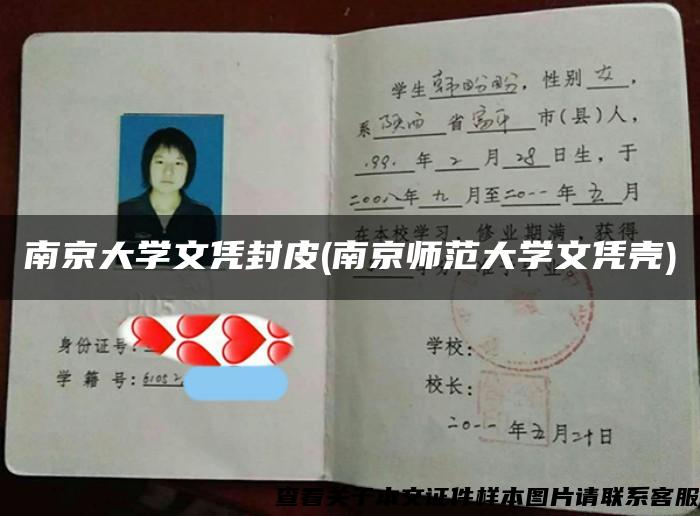 学生 韩盼盼，性别 女，
系 陕西 省 富平 市(县)人，
199 年 2 月 28 日生，于
二00八年 九 月至二0一一年 五 月
在本校学习，修业期满，获得
南京大学文凭封皮(南京师范大学文凭壳)
身份证号：
学 籍 号：6105
学校：
校长：
二0一一年五月二十日
查看关于本文证件样本图片请联系客服